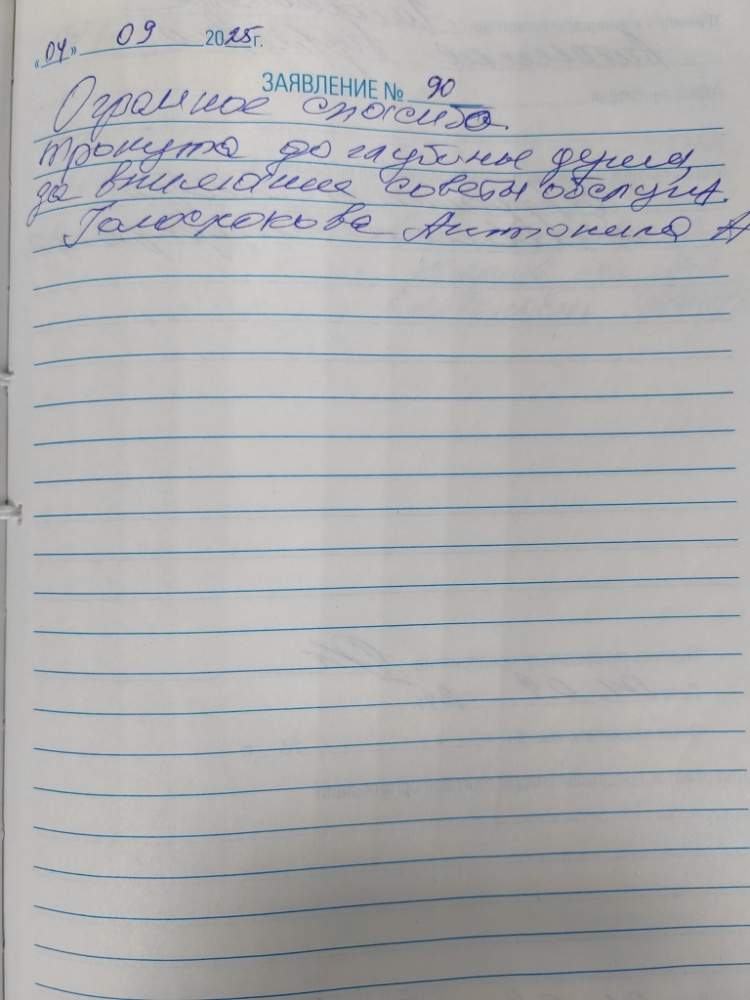 «04» 09 2025г.
ЗАЯВЛЕНИЕ № 90
Огромное спасибо.
тронута до глубины души,
за внимание советы обслуж.
Антонина А